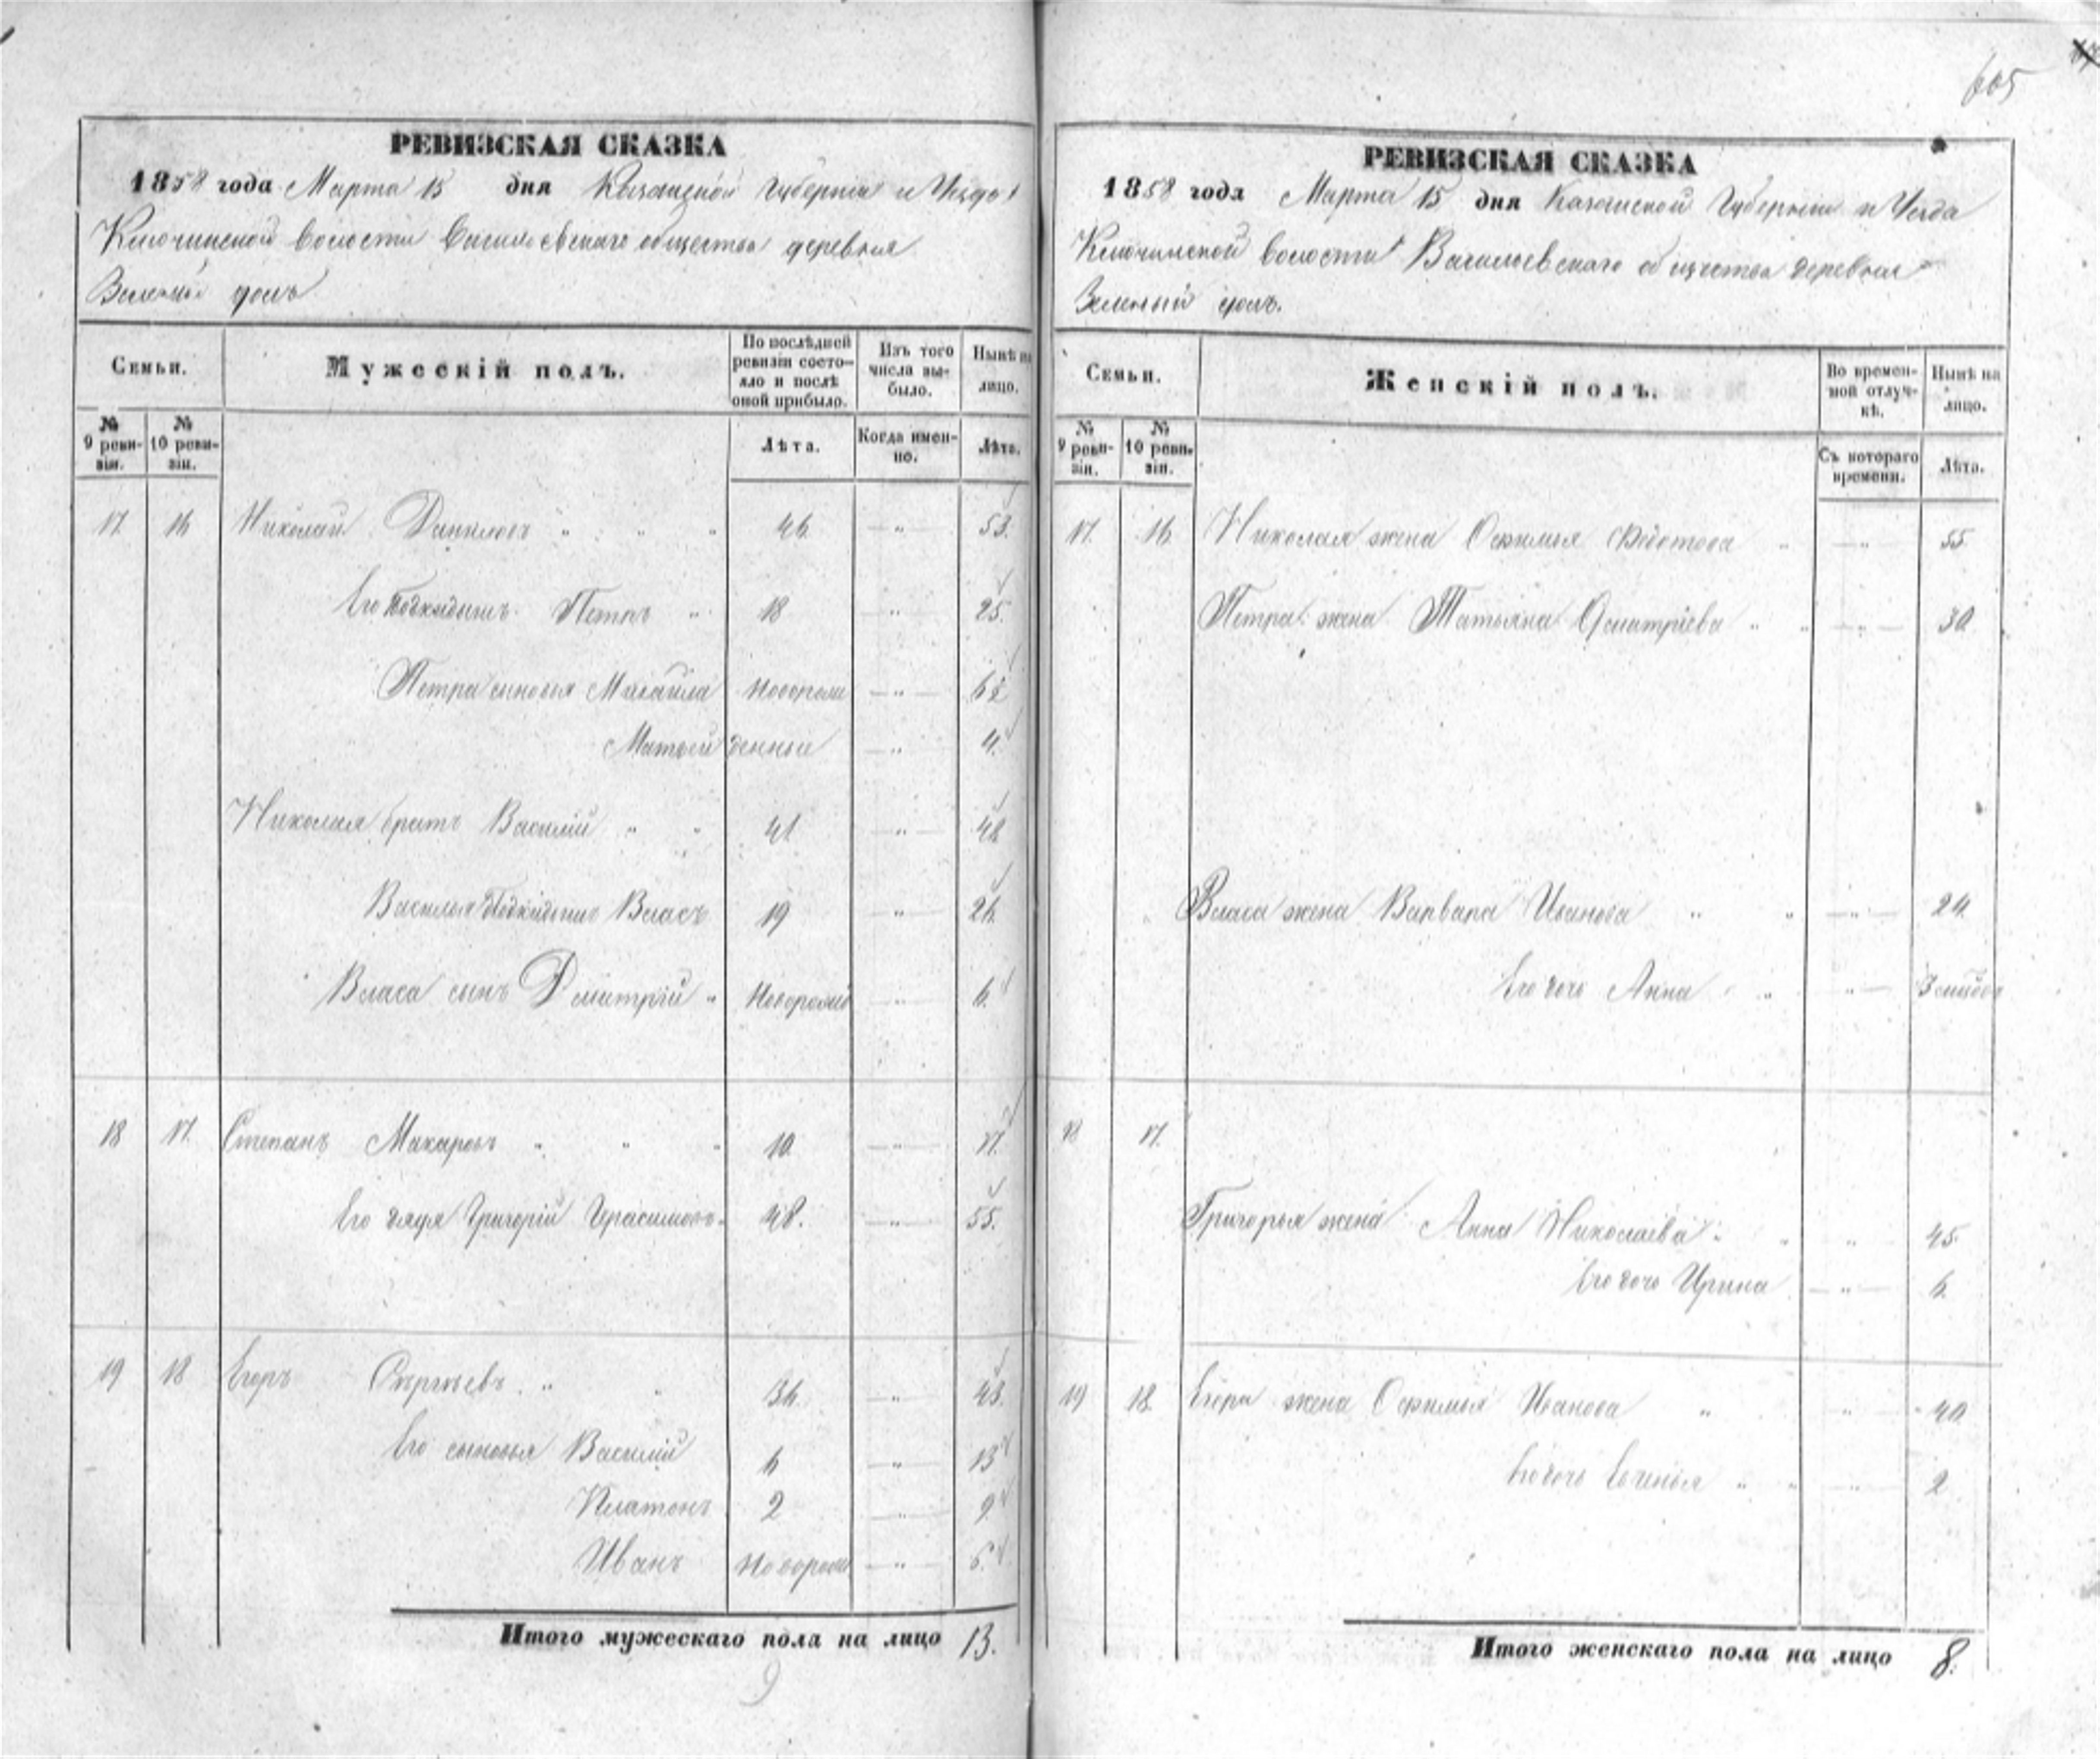 605
РЕВИЗСКАЯ СКАЗКА
1858 года Марта 15 дня Казанской Губерніи и Уезда
Ключинской волости Васильевскаго общества деревня
Зеленый долъ
Семьи.
Мужескій полъ.
По послѣдней ревизіи состояло и послѣ оной прибыло.
Изъ того числа выбыло.
Нынѣ на лицо.
№ 9 ревизіи.
№ 10 ревизіи.
Лѣта.
Когда именно.
Лѣта.
17. 16 Николай Даниловъ " " " 46. — " — 53.
Его подкидышъ Петръ " 18 " 25.
Петра сыновья Михайла новорож — " — 6½
Матвей денные — " 4.
Николая братъ Василій " " 41 " 48
Василья подкидышъ Власъ 19 " 26.
Власа сынъ Дмитрій " Новорожд " 6.
18 17. Степанъ Макаровъ " " " 10. — " — 17.
Его дядя Григорій Герасимовъ 48. — " — 55.
19 18 Егоръ Сергѣевъ " " 36. " 43.
Его сыновья Василій 6 — " — 13
Платонъ 2 " 9
Иванъ Новорож — " —
Итого мужескаго пола на лицо 13.
9
РЕВИЗСКАЯ СКАЗКА
1858 года Марта 15 дня Казанской Губерніи и Уезда
Ключинской волости Васильевскаго общества деревня
Зеленый долъ.
Семьи.
Женскій полъ.
Во временной отлучкѣ.
Нынѣ на лицо.
№ 9 ревизіи.
№ 10 ревизіи.
Съ котораго времени.
Лѣта.
17. 16. Николая жена Офимья Федотова " — " — 55.
Петра жена Татьяна Дмитріева " " — " — 30.
Власа жена Варвара Иванова " " — " — 24.
Его дочь Анна " " —
18 17.
Григорья жена Анна Николаева " " " 45.
Его дочь Ирина — " — 6.
19 18. Егора жена Офимья Иванова " " 40
Его дочь Евгенья " " " 2
Итого женскаго пола на лицо 8.